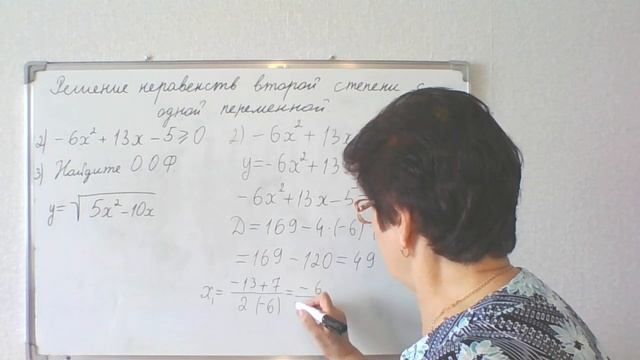 Решение неравенств второй степени с
одной переменной
2) -6x²+13x-5≥0
3) Найдите О.О.Ф.
y=√5x²-10x
2) -6x²+13x
y=-6x²+13
-6x²+13x-5=
D=169-4·(-6)·(
=169-120=49
x₁= -13+7 / 2·(-6) = -6